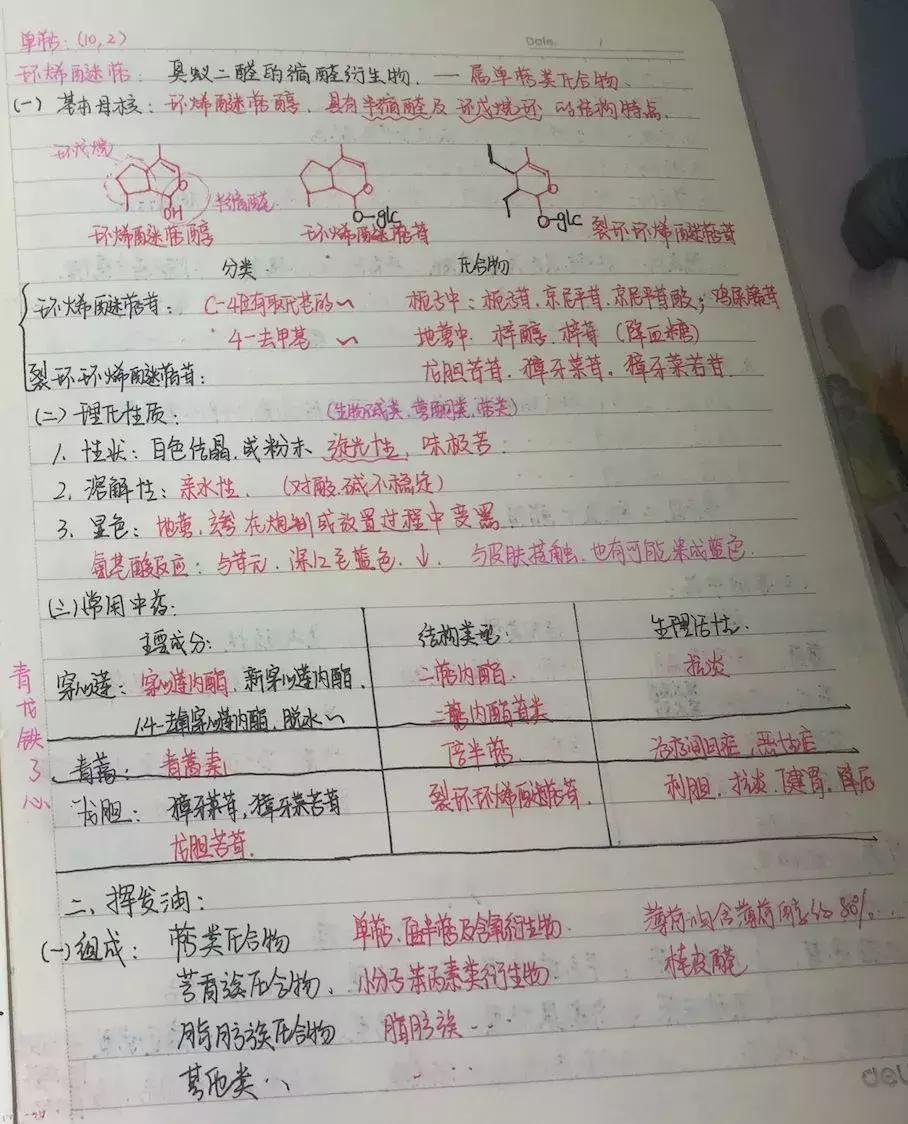 单萜:(10,2)
Date. /
环烯醚萜:臭蚁二醛的缩醛衍生物,一属单萜类化合物、
(一)基本母核:环烯醚萜醇,具有半缩醛及环戊烷环的结构特点.
环戊烷
半缩醛
OH
O-glc
O-glc
环烯醚萜醇 环烯醚萜苷 裂环环烯醚萜苷
分类 化合物
环烯醚萜苷: C-4位有取代基的~ 栀子中:栀子苷.京尼平苷.京尼平苷酸;鸡屎藤苷
4-去甲基 ~ 地黄中.梓醇.梓苷(降血糖)
裂环环烯醚萜苷: 龙胆苦苷.獐牙菜苷.獐牙菜苦苷.
(二)理化性质: (生物碱类.黄酮类.萜类)
1. 性状:白色结晶.或粉末 旋光性,味极苦.
2. 溶解性:亲水性.(对酸.碱不稳定)
3. 显色:地黄.玄参在炮制或放置过程中变黑.
氨基酸反应:与苷元.深红至蓝色.↓. 与皮肤接触.也有可能染成蓝色.
(三)常用中药:
主要成分: 结构类型: 生理活性.
穿心莲:穿心莲内酯.新穿心莲内酯. 二萜内酯. 抗炎
14-去氧穿心莲内酯.脱水~ 二萜内酯苷类
青蒿:青蒿素 倍半萜 治疗间日疟.恶性疟
龙胆:獐牙菜苷,獐牙菜苦苷 裂环环烯醚萜苷. 利胆.抗炎.健胃.降压
龙胆苦苷.
青龙铁了心
二、挥发油:
(一)组成:萜类化合物 单萜.倍半萜及含氧衍生物. 薄荷油含薄荷醇80%...
芳香族化合物、小分子苯丙素类衍生物 桂皮醛
脂肪族化合物 脂肪族...
其他类..